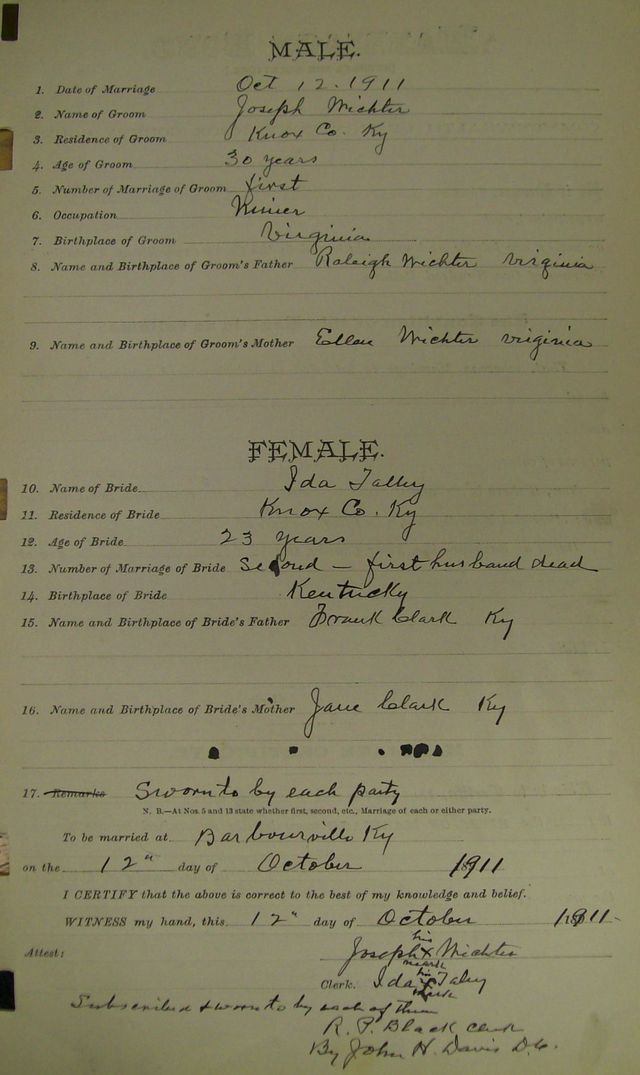 MALE.
1. Date of Marriage Oct 12. 1911
2. Name of Groom Joseph Wichter
3. Residence of Groom Knox Co. Ky
4. Age of Groom 30 years
5. Number of Marriage of Groom first
6. Occupation Miner
7. Birthplace of Groom Virginia
8. Name and Birthplace of Groom's Father Raleigh Wichter Virginia
9. Name and Birthplace of Groom's Mother Ellen Wichter Virginia
FEMALE.
10. Name of Bride Ida Talley
11. Residence of Bride Knox Co. Ky
12. Age of Bride 23 years
13. Number of Marriage of Bride Second – first husband dead
14. Birthplace of Bride Kentucky
15. Name and Birthplace of Bride's Father Frank Clark Ky
16. Name and Birthplace of Bride's Mother Jane Clark Ky
17. Remarks Sworn to by each party
N. B.—At Nos. 5 and 13 state whether first, second, etc., Marriage of each or either party.
To be married at Barbourville Ky
on the 12" day of October 1911
I CERTIFY that the above is correct to the best of my knowledge and belief.
WITNESS my hand, this 12" day of October 1911
his
Attest: Joseph x Wichter
mark
Clerk. Ida x Taley
mark
Subscribed & sworn to by each of them
R. P. Black Clerk
By John H. Davis D.C.